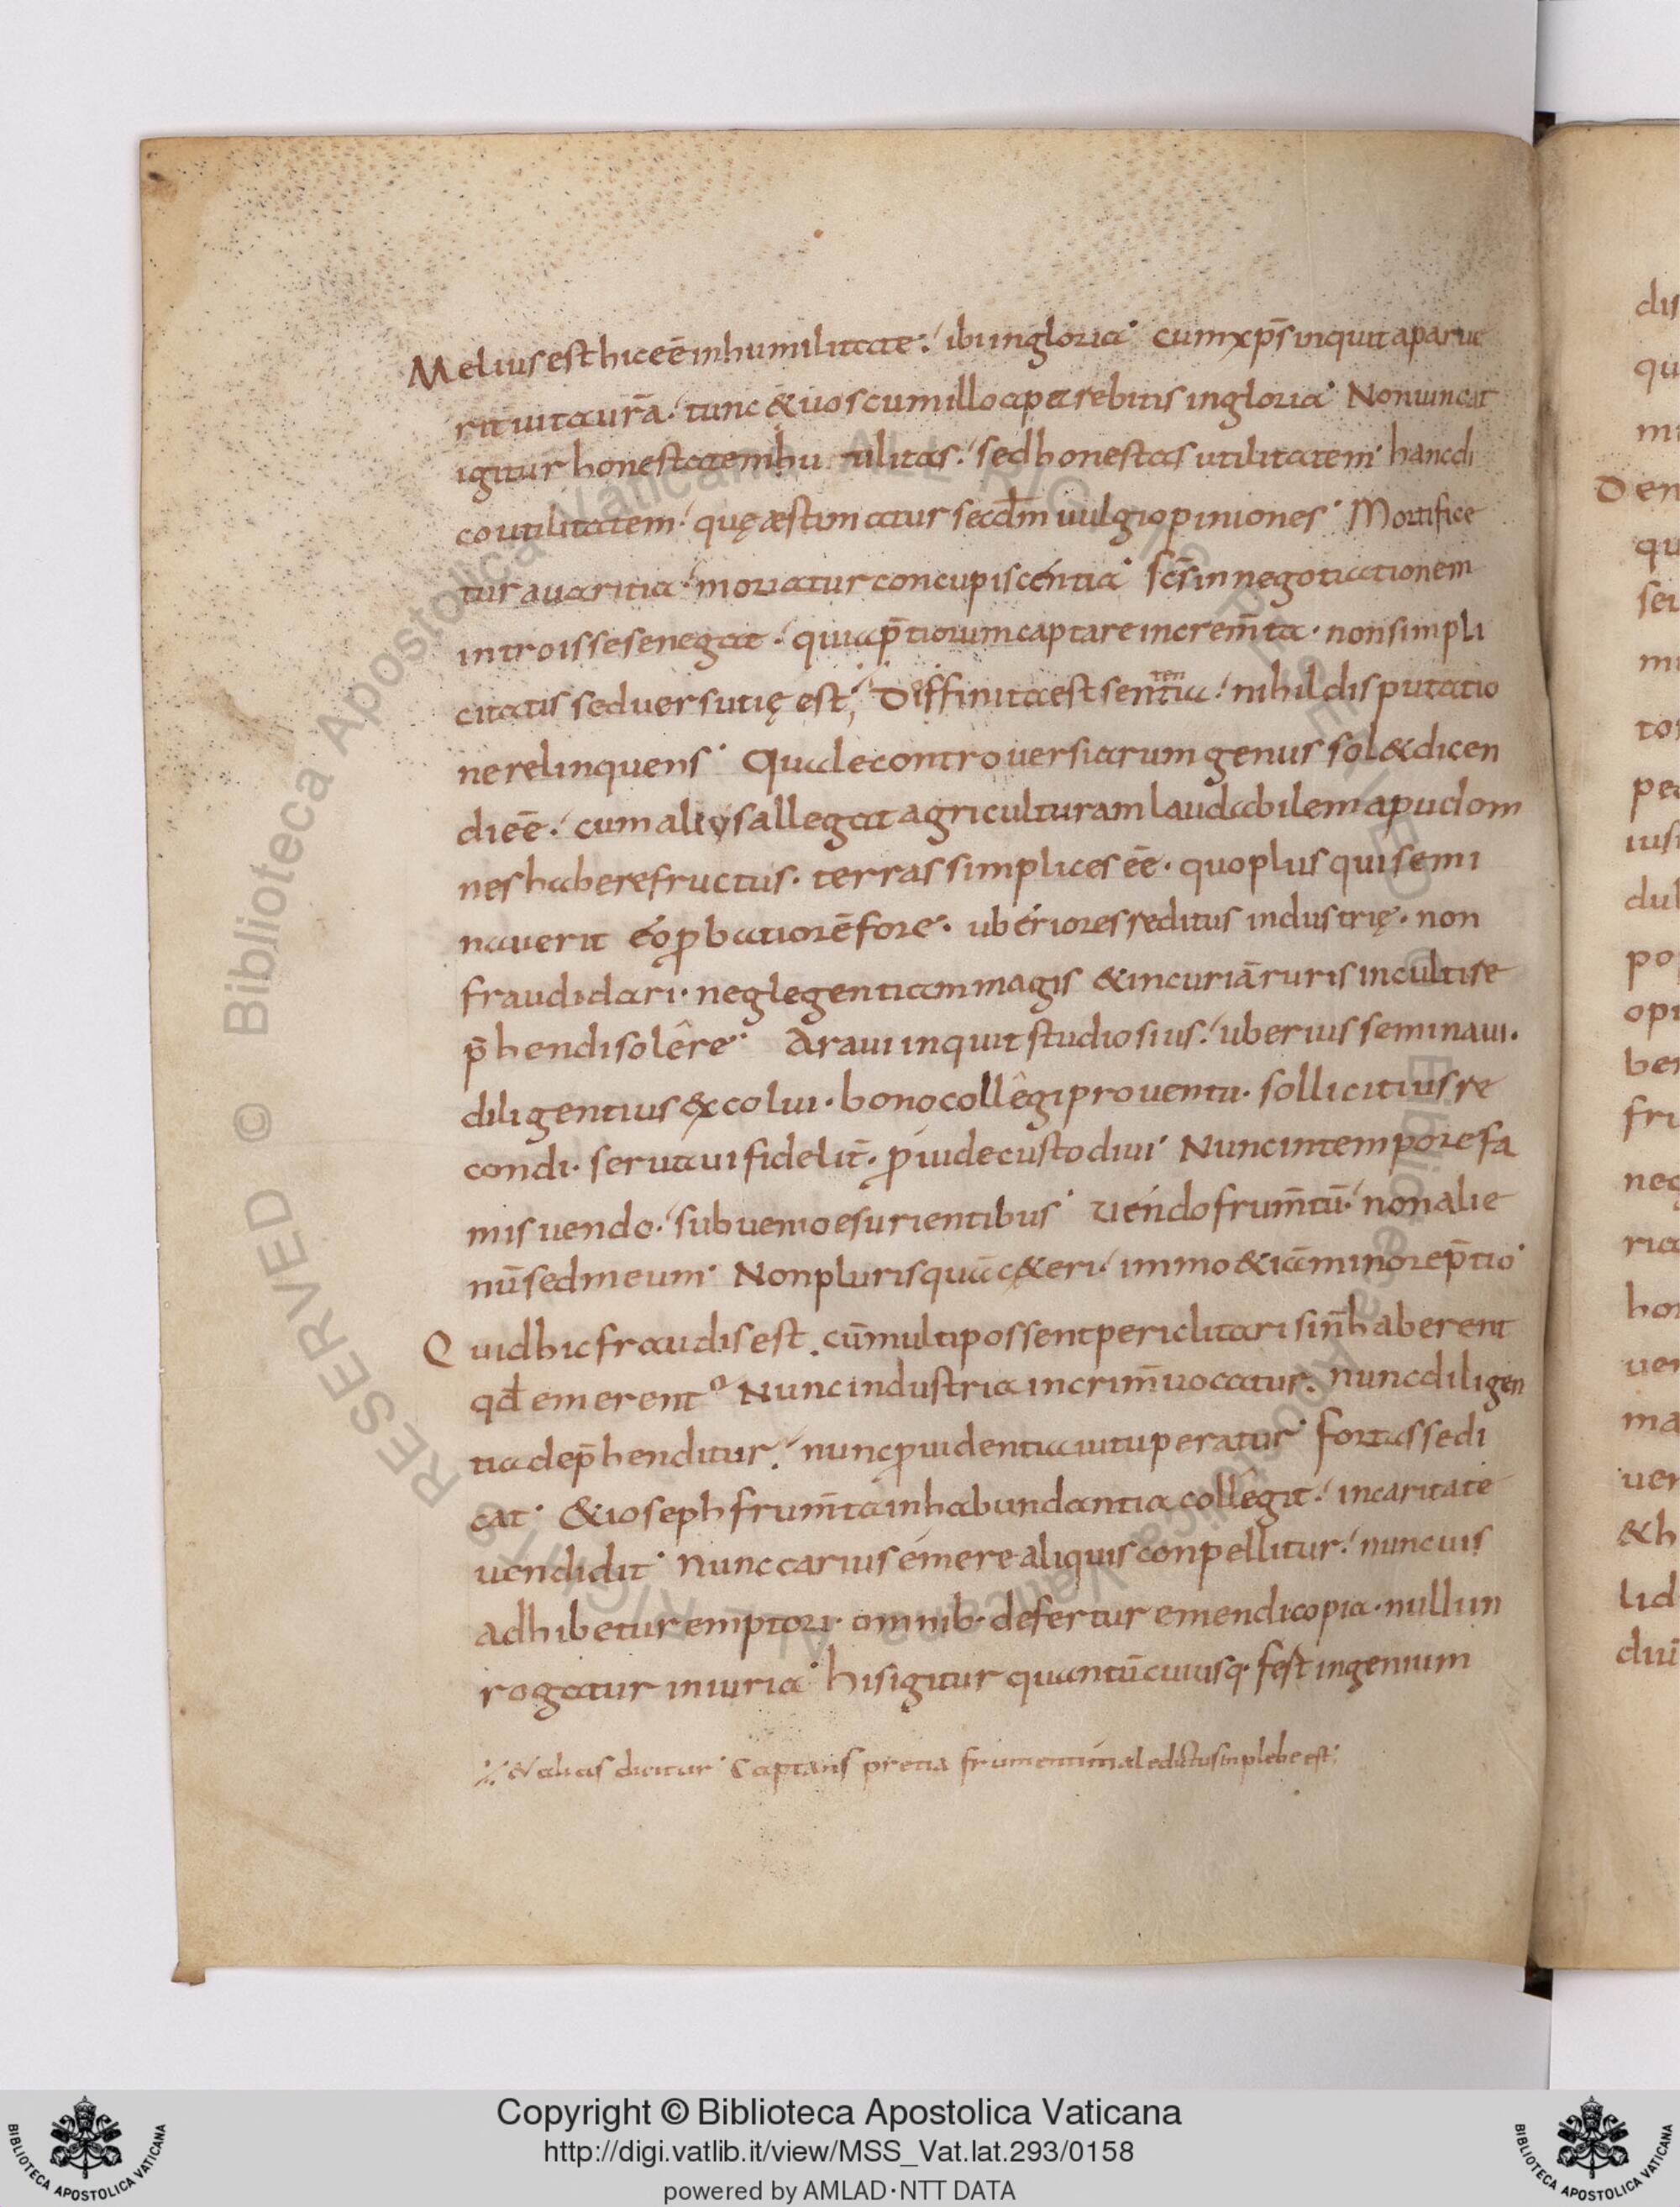 Melius est hic eē in humilitate · ibi in gloria · cum xp̄s inquit aparue
rit vita ur̄a · tunc & uos cum illo aparebitis in gloria · Non uincat
igitur honestatem utilitas · sed honestas utilitatem · hanc di
co utilitatem · quę æstimatur secdm̄ uulgi opiniones · Mortifice
tur auaritia · moriatur concupiscentia · sc̄s in negotiationem
introisse se negat · quia p̄tiorum captare increm̄ta · non simpli
citatis sed uersutię est ; Diffinita est sententia · nihil disputatio
ne relinquens · Quale controuersiarum genus sol& dicen
di eē · cum alius allegat agriculturam laudabilem apud om
nes habere fructus · terras simplices eē · quo plus qui semi
nauerit eo ꝓbatiorē fore · uberiores reditus industrię · non
fraudi dari · neglegentiam magis & incuriā ruris inculti re
p̄hendi solêre · Araui inquit studiosius · uberius seminaui ·
diligentius excolui · bono collêgi prouentu · sollicitius re
condi · seruaui fidelit̄ · ꝓuide custodiui · Nunc in tempore fa
mis uendo · subuenio esurientibus · uendo frum̄tū · non alie
nū sed meum · Non pluris quā c&eri · immo &iā minore p̄tio ·
Quid hic fraudis est · cū multi possent periclitari si n̄ haberent
qđ emerent · Nunc industria in crim̄ uocatur · nunc diligen
tia dep̄henditur · nunc ꝓuidentia uituperatur · fortasse di
cat · & ioseph frum̄ta in habundantia collêgit · in caritate
uendidit · Nunc carius emere aliquis conpellitur · nunc uis
adhibetur emptori · omnib· defertur emendi copia · nulli in
rogatur iniuria · his igitur quantū cuiusq· fest ingenium
& alias dicitur · Captans pretia frumenti maledictus in plebe est ·
dis
qu
mi
Den
qu
ser
mi
tos
pec
iusi
dul
po
opi
ber
fri
neg
ria
hon
uer
ma
uer
&h
lid
duī
RESERVED © Biblioteca Apostolica Vaticana. ALL RIGHTS RESERVED © Biblioteca Apostolica Vaticana. ALL RIGHTS
Copyright © Biblioteca Apostolica Vaticana
http://digi.vatlib.it/view/MSS_Vat.lat.293/0158
powered by AMLAD·NTT DATA
BIBLIOTECA APOSTOLICA VATICANA
BIBLIOTECA APOSTOLICA VATICANA